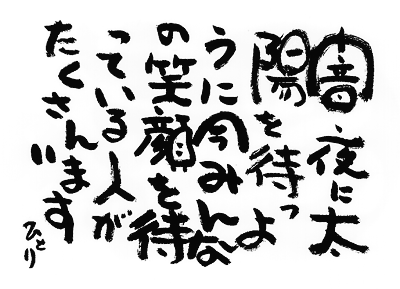 闇夜に太
陽を待つよ
うに今みんな
の笑顔を待
っている人が
たくさんいます
ひとり